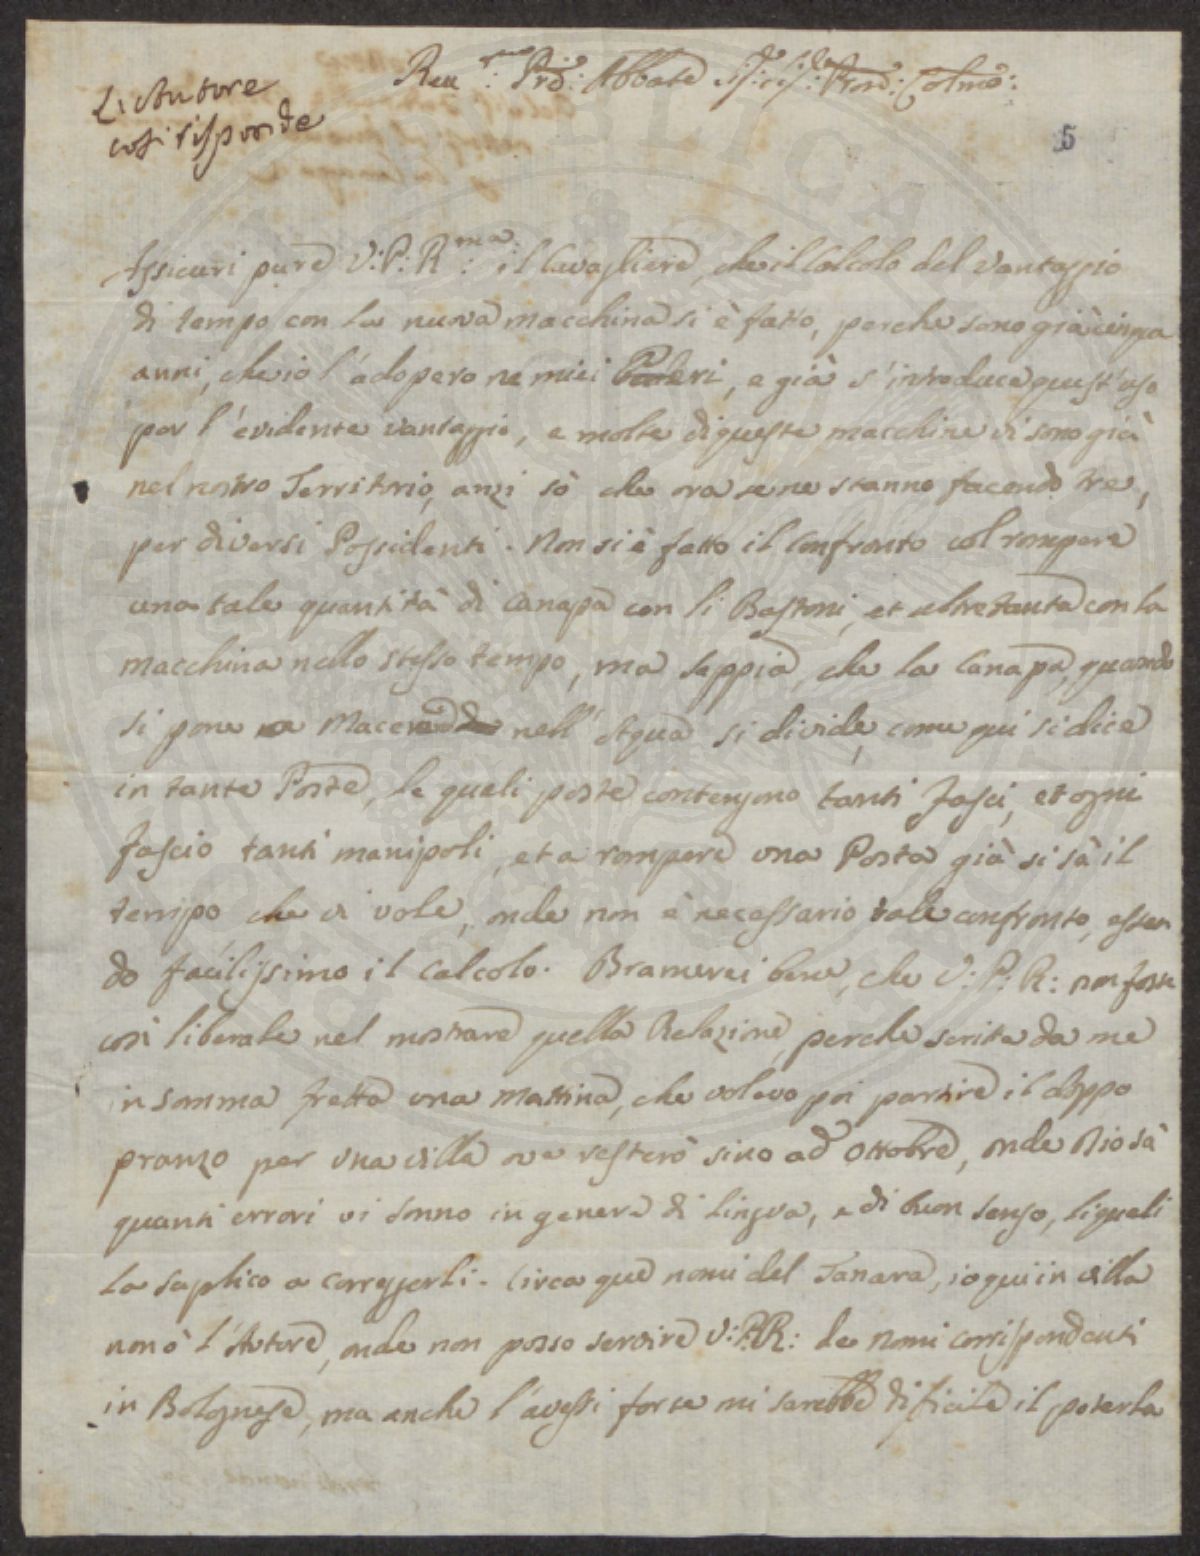 L'Autore
così risponde
Rev.mo Prè: Abbate
5
Assicuri pure V: P: R:ma il Cavagliere, che il Calcolo del Vantaggio
di tempo, con la nuova macchina si è fatto, perche sono già cinque
anni, che io l'adopero ne miei Poderi, e già s'introduce quest'uso
per l'evidente vantaggio, e molte di queste macchine vi sono già
nel nostro Territorio, anzi sò che ora se ne stanno facendo tre,
per diversi Possidenti. Non si è fatto il Confronto col rompere
una tale quantità di Canapa con li Bastoni, et altretanta con la
macchina nello stesso tempo, ma sappia, che la Canapa, quando
si pone a Macerare nell'Aqua si divide, come qui si dice
in tante Poste, le quali poste contengono tanti fasci, et ogni
fascio tanti manipoli, et a rompere una Posta già si sà il
tempo che vi vole, onde non è necessario tale confronto, essen
do facilissimo il Calcolo. Bramerei bene, che V: P: R: non fosse
così liberale nel mostrare quella Relazione, perche scritta da me
in somma fretta una mattina, che volevo poi partire il doppo
pranzo per una villa ove resterò sino ad Ottobre, onde Dio sà
quanti errori vi sonno in genere di lingua, e di buon senso, li quali
la suplico a corregerli. Circa que nomi del Tanara, io qui in villa
non ò l'Autore, onde non posso servire V: P: R: de nomi corrispondenti
in Bolognese, ma anche l'avessi forse mi sarebbe dificile il poterla